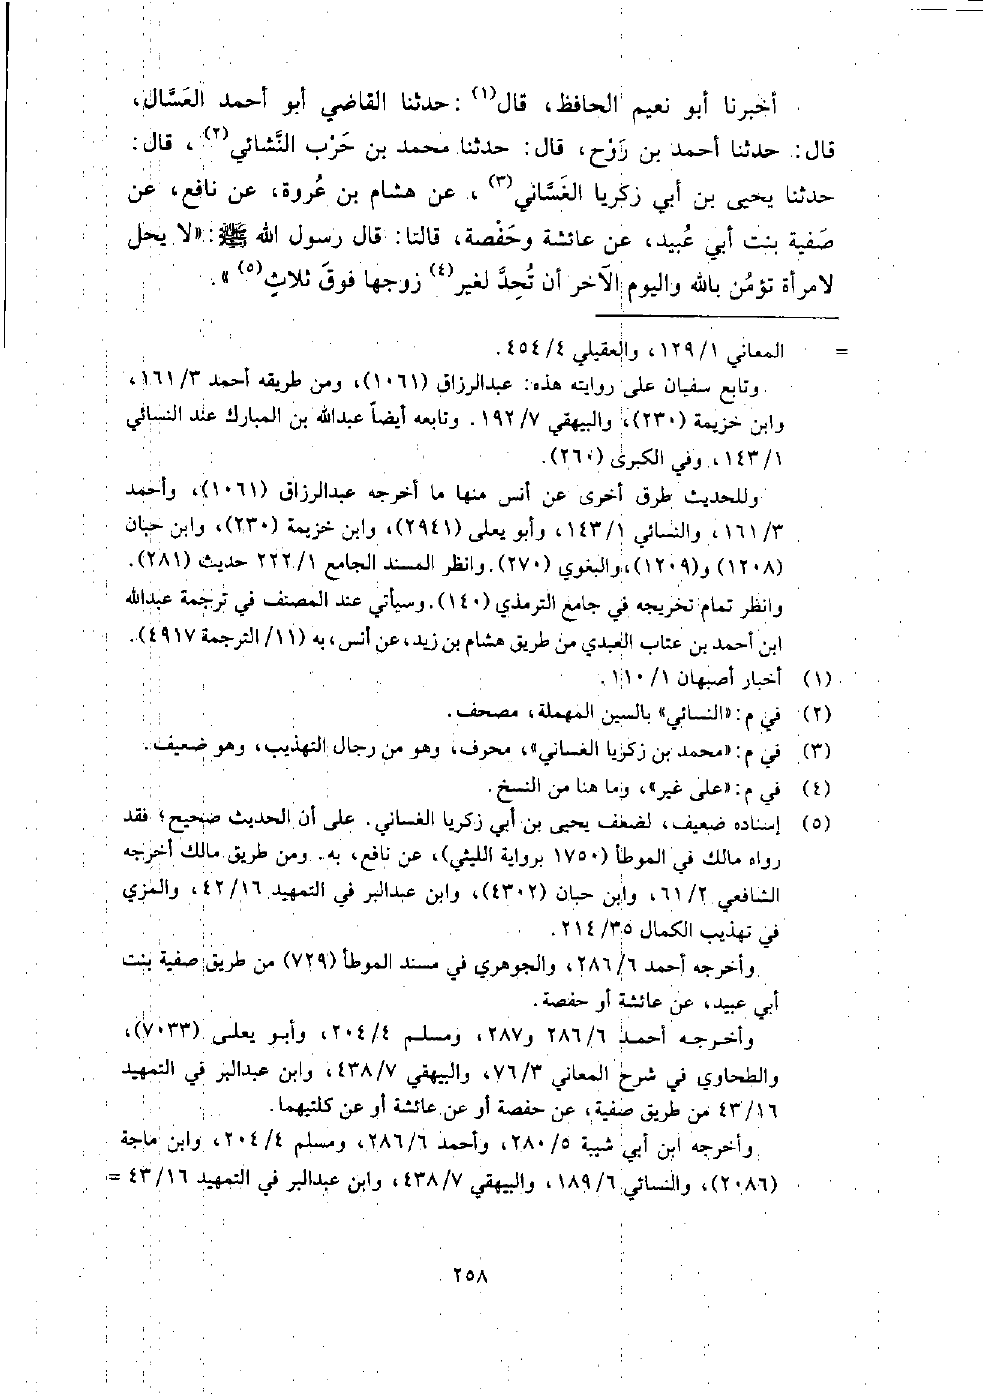 أخبرنا أبو نعيم الحافظ، قال(١): حدثنا القاضي أبو أحمد العَسَّال،
قال: حدثنا أحمد بن رَوْح، قال: حدثنا محمد بن حَرْب النَّشائي(٢)، قال:
حدثنا يحيى بن أبي زكريا الغَسَّاني(٣)، عن هشام بن عُروة، عن نافع، عن
صَفية بنت أبي عُبيد، عن عائشة وحَفْصة، قالتا: قال رسول الله ﷺ: «لا يحل
لامرأة تؤمُن بالله واليوم الآخر أن تُحِدَّ لغير(٤) زوجها فوقَ ثلاثٍ(٥)».
= المعاني ١/ ١٢٩، والعقيلي ٤/ ٤٥٤.
وتابع سفيان على روايته هذه: عبدالرزاق (١٠٦١)، ومن طريقه أحمد ٣/ ١٦١،
وابن خزيمة (٢٣٠)، والبيهقي ٧/ ١٩٢. وتابعه أيضاً عبدالله بن المبارك عند النسائي
١/ ١٤٣، وفي الكبرى (٢٦٠).
وللحديث طرق أخرى عن أنس منها ما أخرجه عبدالرزاق (١٠٦١)، وأحمد
٣/ ١٦١، والنسائي ١/ ١٤٣، وأبو يعلى (٢٩٤١)، وابن خزيمة (٢٣٠)، وابن حبان
(١٢٠٨) و(١٢٠٩)، والبغوي (٢٧٠). وانظر المسند الجامع ١/ ٢٢٢ حديث (٢٨١).
وانظر تمام تخريجه في جامع الترمذي (١٤٠). وسيأتي عند المصنف في ترجمة عبدالله
ابن أحمد بن عتاب العبدي من طريق هشام بن زيد، عن أنس، به (١١/ الترجمة ٤٩١٧).
(١) أخبار أصبهان ١/ ١١٠.
(٢) في م: «النسائي» بالسين المهملة، مصحف.
(٣) في م: «محمد بن زكريا الغساني»، محرف، وهو من رجال التهذيب، وهو ضعيف.
(٤) في م: «على غير»، وما هنا من النسخ.
(٥) إسناده ضعيف، لضعف يحيى بن أبي زكريا الغساني. على أن الحديث صحيح؛ فقد
رواه مالك في الموطأ (١٧٥٠ برواية الليثي)، عن نافع، به. ومن طريق مالك أخرجه
الشافعي ٢/ ٦١، وابن حبان (٤٣٠٢)، وابن عبدالبر في التمهيد ١٦/ ٤٢، والمزي
في تهذيب الكمال ٣٥/ ٢١٤.
وأخرجه أحمد ٦/ ٢٨٦، والجوهري في مسند الموطأ (٧٢٩) من طريق صفية بنت
أبي عبيد، عن عائشة أو حفصة.
وأخرجه أحمد ٦/ ٢٨٦ و٢٨٧، ومسلم ٤/ ٢٠٤، وأبو يعلى (٧٠٣٣)،
والطحاوي في شرح المعاني ٣/ ٧٦، والبيهقي ٧/ ٤٣٨، وابن عبدالبر في التمهيد
١٦/ ٤٣ من طريق صفية، عن حفصة أو عن عائشة أو عن كلتيهما.
وأخرجه ابن أبي شيبة ٥/ ٢٨٠، وأحمد ٦/ ٢٨٦، ومسلم ٤/ ٢٠٤، وابن ماجة
(٢٠٨٦)، والنسائي ٦/ ١٨٩، والبيهقي ٧/ ٤٣٨، وابن عبدالبر في التمهيد ١٦/ ٤٣ =
٢٥٨